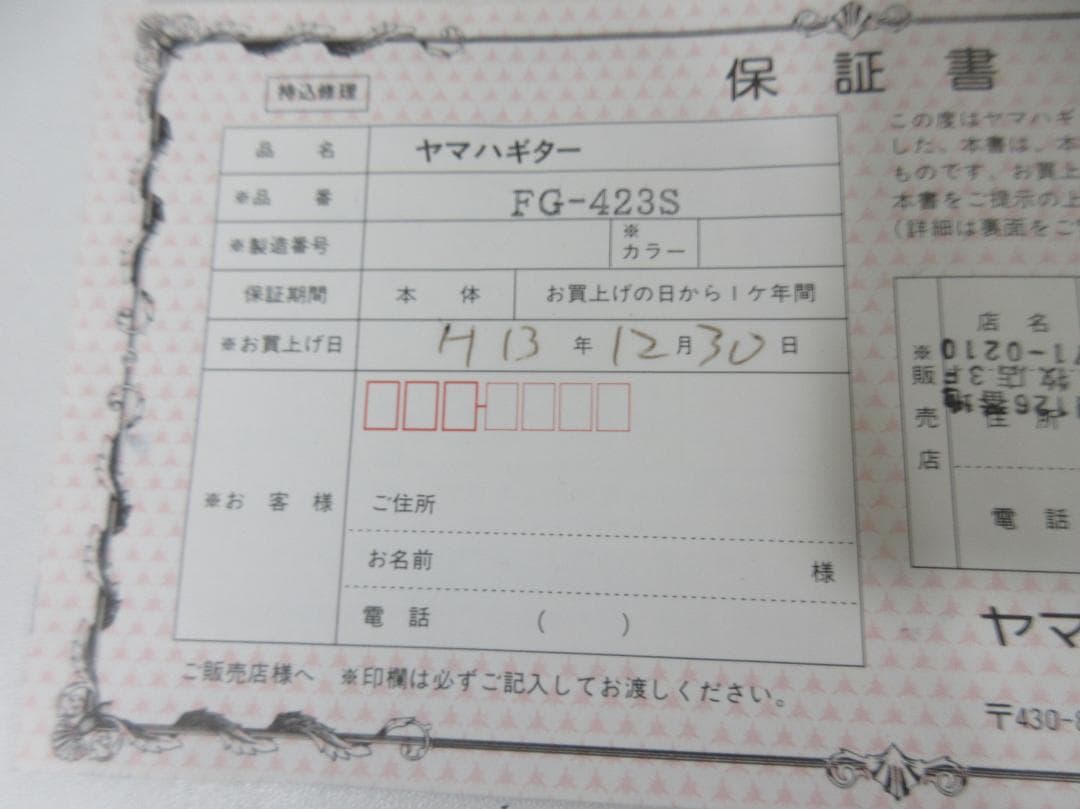 保証書
持込修理
品名 ヤマハギター
※品番 FG-423S
※製造番号 ※カラー
保証期間 本体 お買上げの日から1ケ年間
※お買上げ日 H13年12月30日
※お客様
ご住所
お名前 様
電話 ( )
ご販売店様へ ※印欄は必ずご記入してお渡しください。
この度はヤマハギ
した。本書は、本
ものです。お買上
本書をご提示の上
(詳細は裏面をご
※販売店
店名
住所
電話
ヤマ
〒430-8